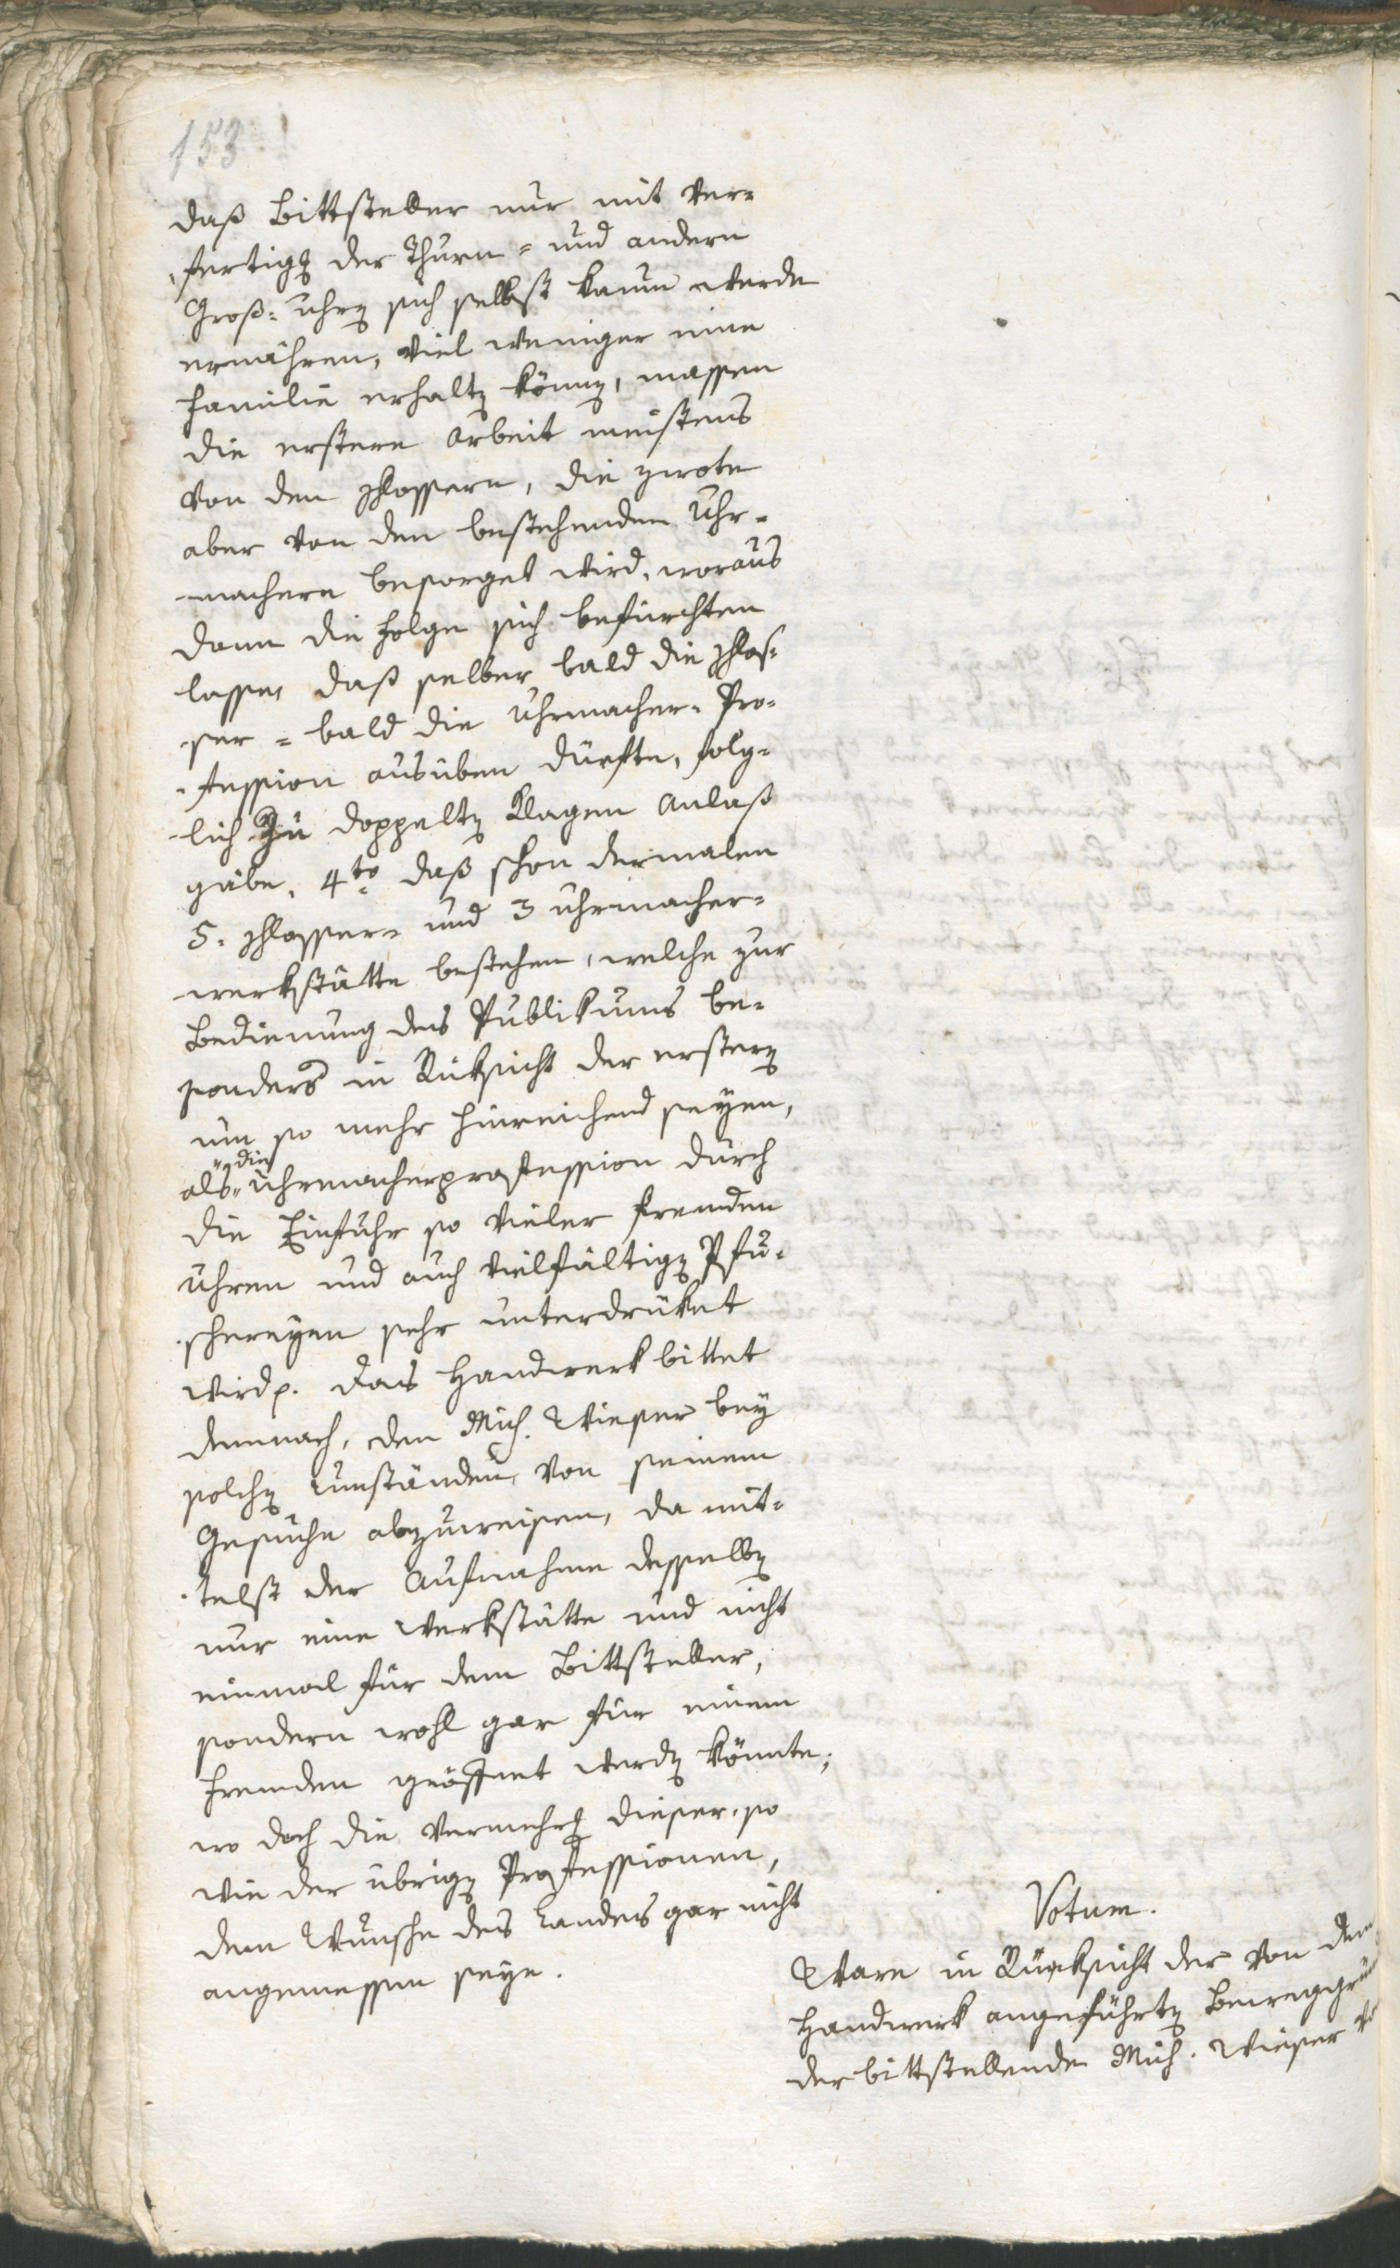 153
daß Bittsteller nur mit Ver=
fertigg der Thurn= und andern
Groß=uhrn sich selbst kaum werde
ernähren, viel weniger eine
Familie erhaltn könn, massen
die erstere Arbeit meistens
von den Schlossern, die zwote
aber von den bestehenden Uhr=
machern besorget wird, woraus
dann die Folge sich befürchten
lasse, daß selber bald die Schlos=
ser = bald die Uhrmacher=Pro=
fession ausüben dürfte, folg=
lich zu doppeltn Klagen Anlaß
gäbe, 4to daß schon dermalen
5. Schlosser= und 3 Uhrmacher=
werkstätte bestehen, welche zur
Bedienung des Publikums be=
sonders in Rüksicht der erstern
um so mehr hinreichend seyen,
als die Uhrmacherprofession durch
die Einfuhr so vieler fremden
Uhren und auch vielfältign Pfu=
schereyen sehr unterdrüket
wird p. Das Handwerk bittet
demnach, den Mich. Wieser bey
solchn Umständen von seinem
Gesuche abzuweisen, da mit=
telst der Aufnahme desselbn
nur eine Werkstätte und nicht
einmal für dem Bittsteller,
sondern wohl gar für einem
Fremden geöffnet werdn könnte,
wo doch die Vermehrg dieser, so
wie der übrign Professionen,
dem Wunsche des Landes gar nicht
angemessen seye.
Votum.
Ware in Rücksicht der von dem
Handwerk angeführtn Beweggrün
der bittstellende Mich. Wieser